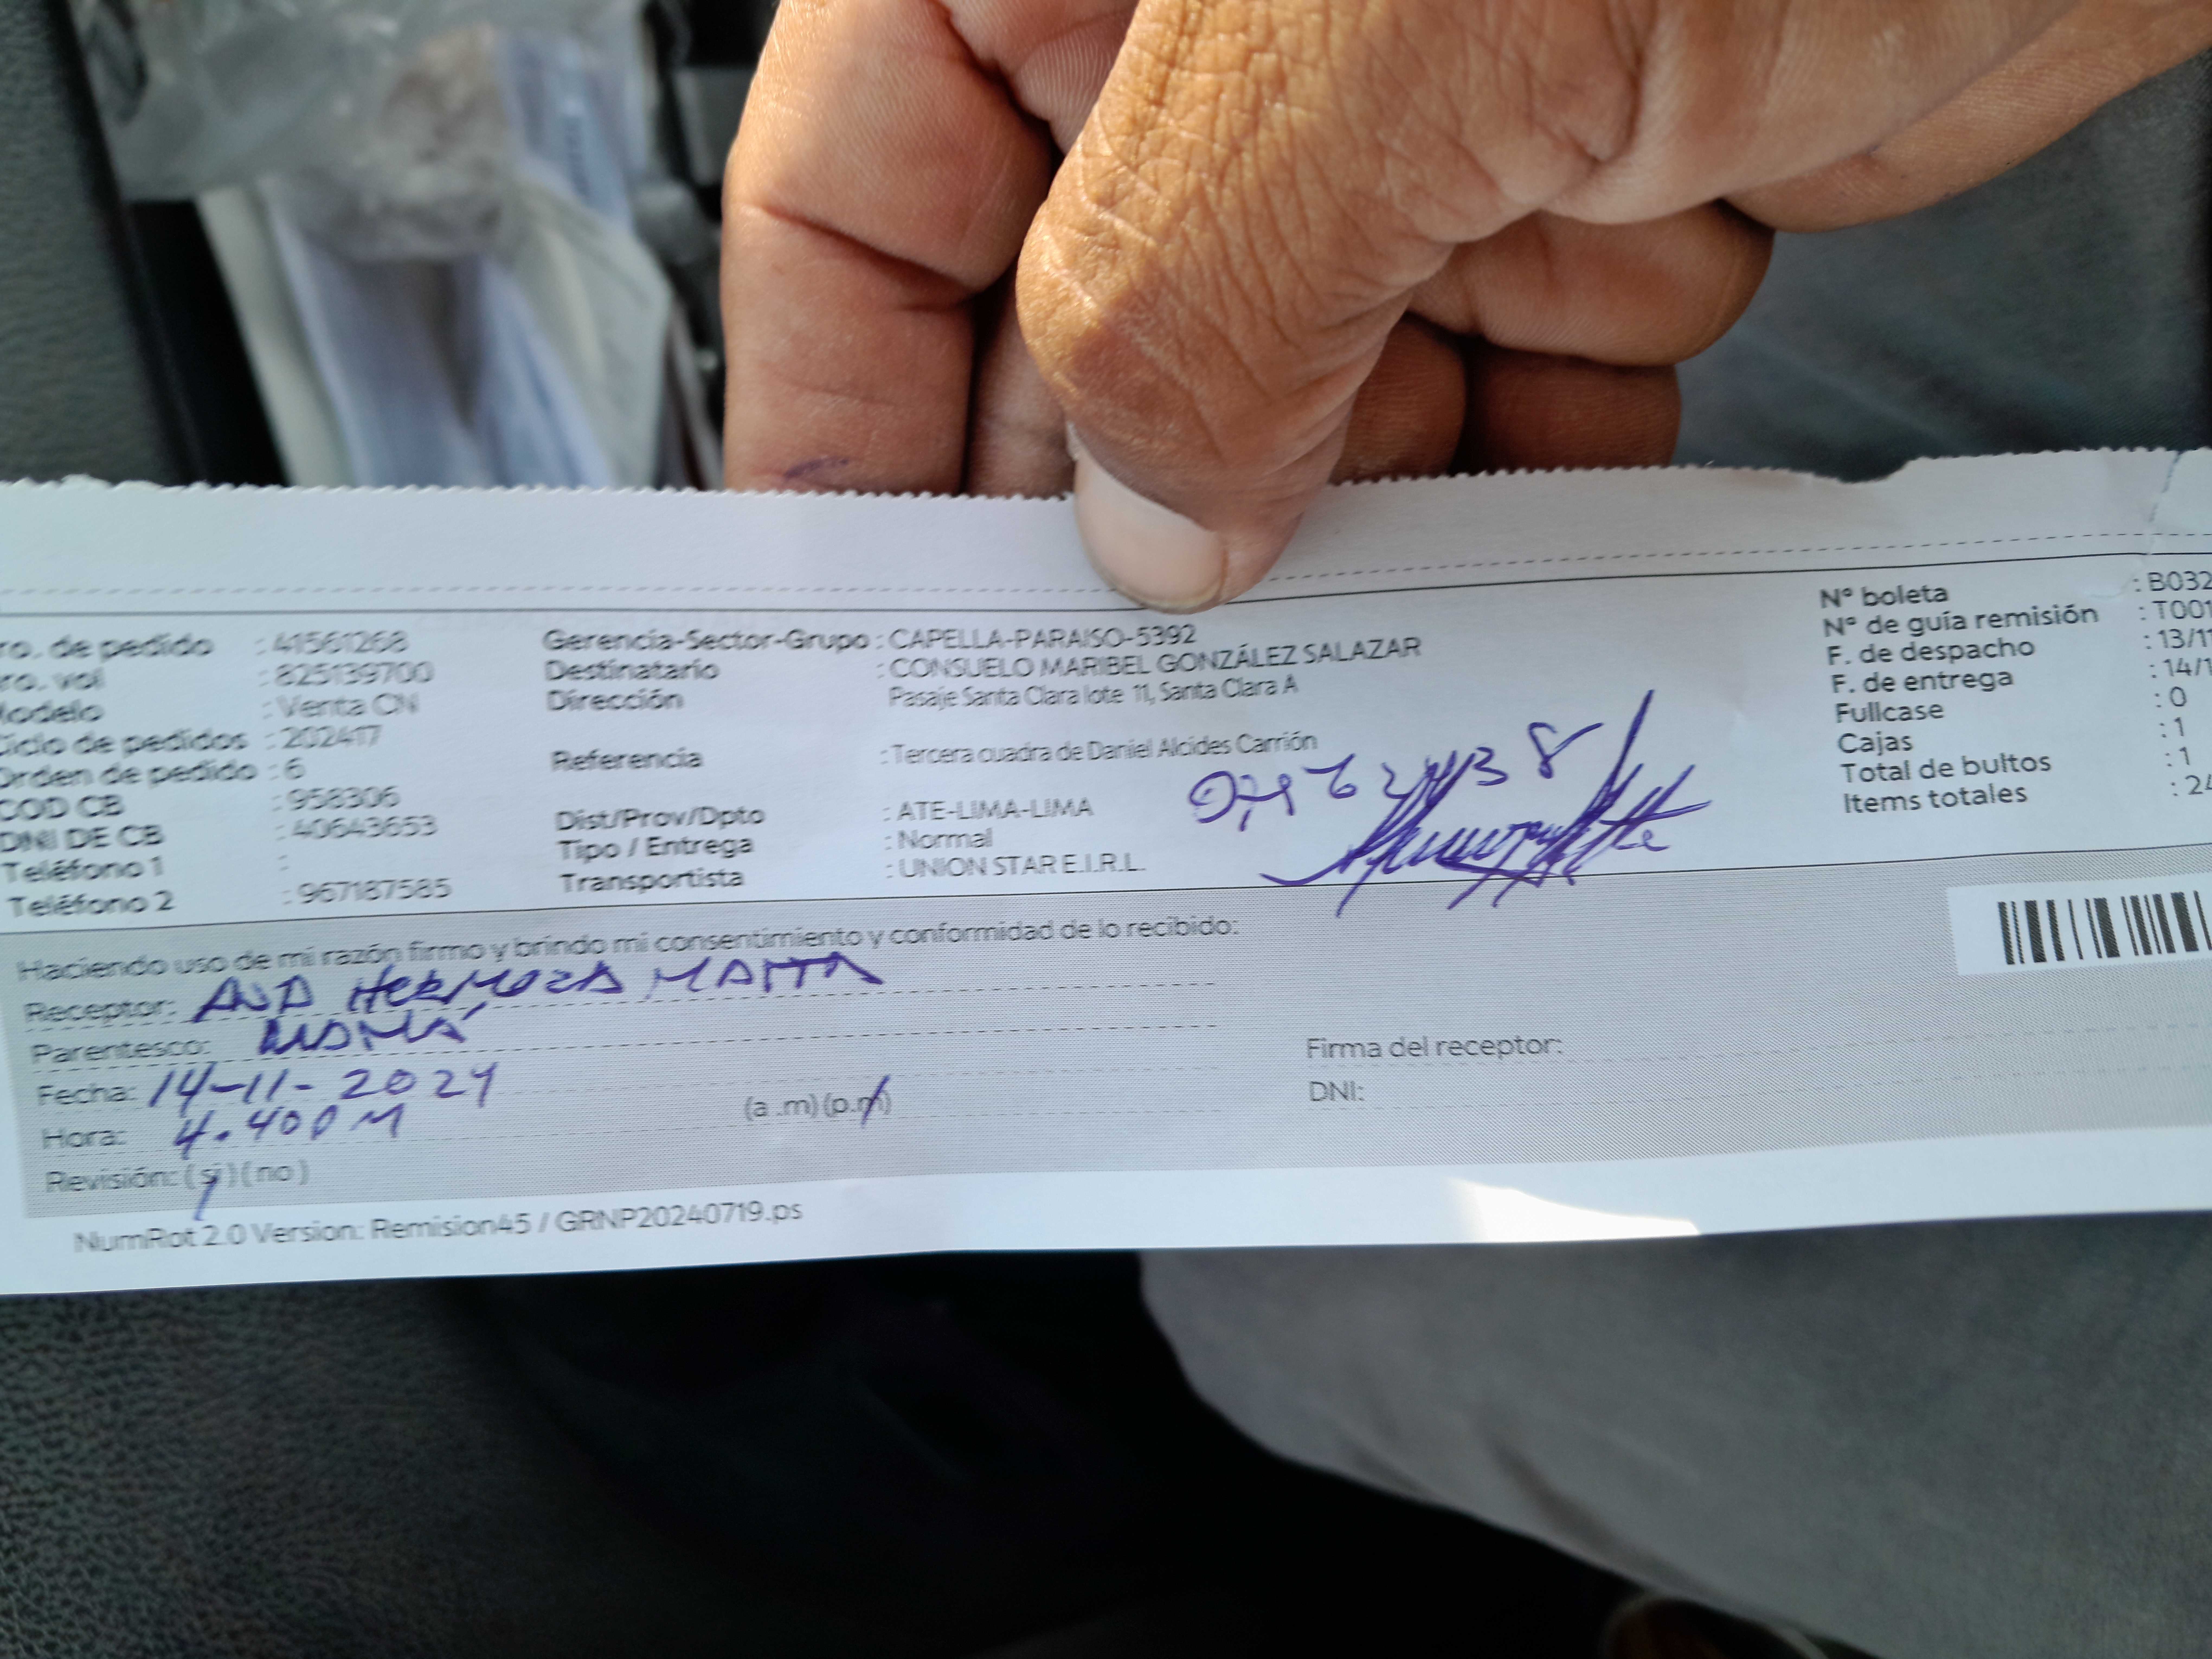 ro. de pedido : 41561268
ro. vol : 825139700
Modelo : Venta CN
Ciclo de pedidos : 202417
Orden de pedido : 6
COD CB : 958306
DNI DE CB : 40643653
Teléfono 1 :
Teléfono 2 : 967187585
Gerencia-Sector-Grupo : CAPELLA-PARAISO-5392
Destinatario : CONSUELO MARIBEL GONZÁLEZ SALAZAR
Dirección Pasaje Santa Clara lote 11, Santa Clara A
Referencia : Tercera cuadra de Daniel Alcides Carrión
Dist/Prov/Dpto : ATE-LIMA-LIMA
Tipo / Entrega : Normal
Transportista : UNION STAR E.I.R.L.
N° boleta : B032
N° de guía remisión : T001
F. de despacho : 13/11
F. de entrega : 14/1
Fullcase : 0
Cajas : 1
Total de bultos : 1
Items totales : 24
Haciendo uso de mi razón firmo y brindo mi consentimiento y conformidad de lo recibido:
Receptor: ANA HERMOZA MATTA
Parentesco: MAMÁ
Fecha: 14-11-2024
Hora: 4.40PM (a .m) (p.m)
Revisión: (si) (no)
Firma del receptor:
DNI:
NumRot 2.0 Version: Remision45 / GRNP20240719.ps